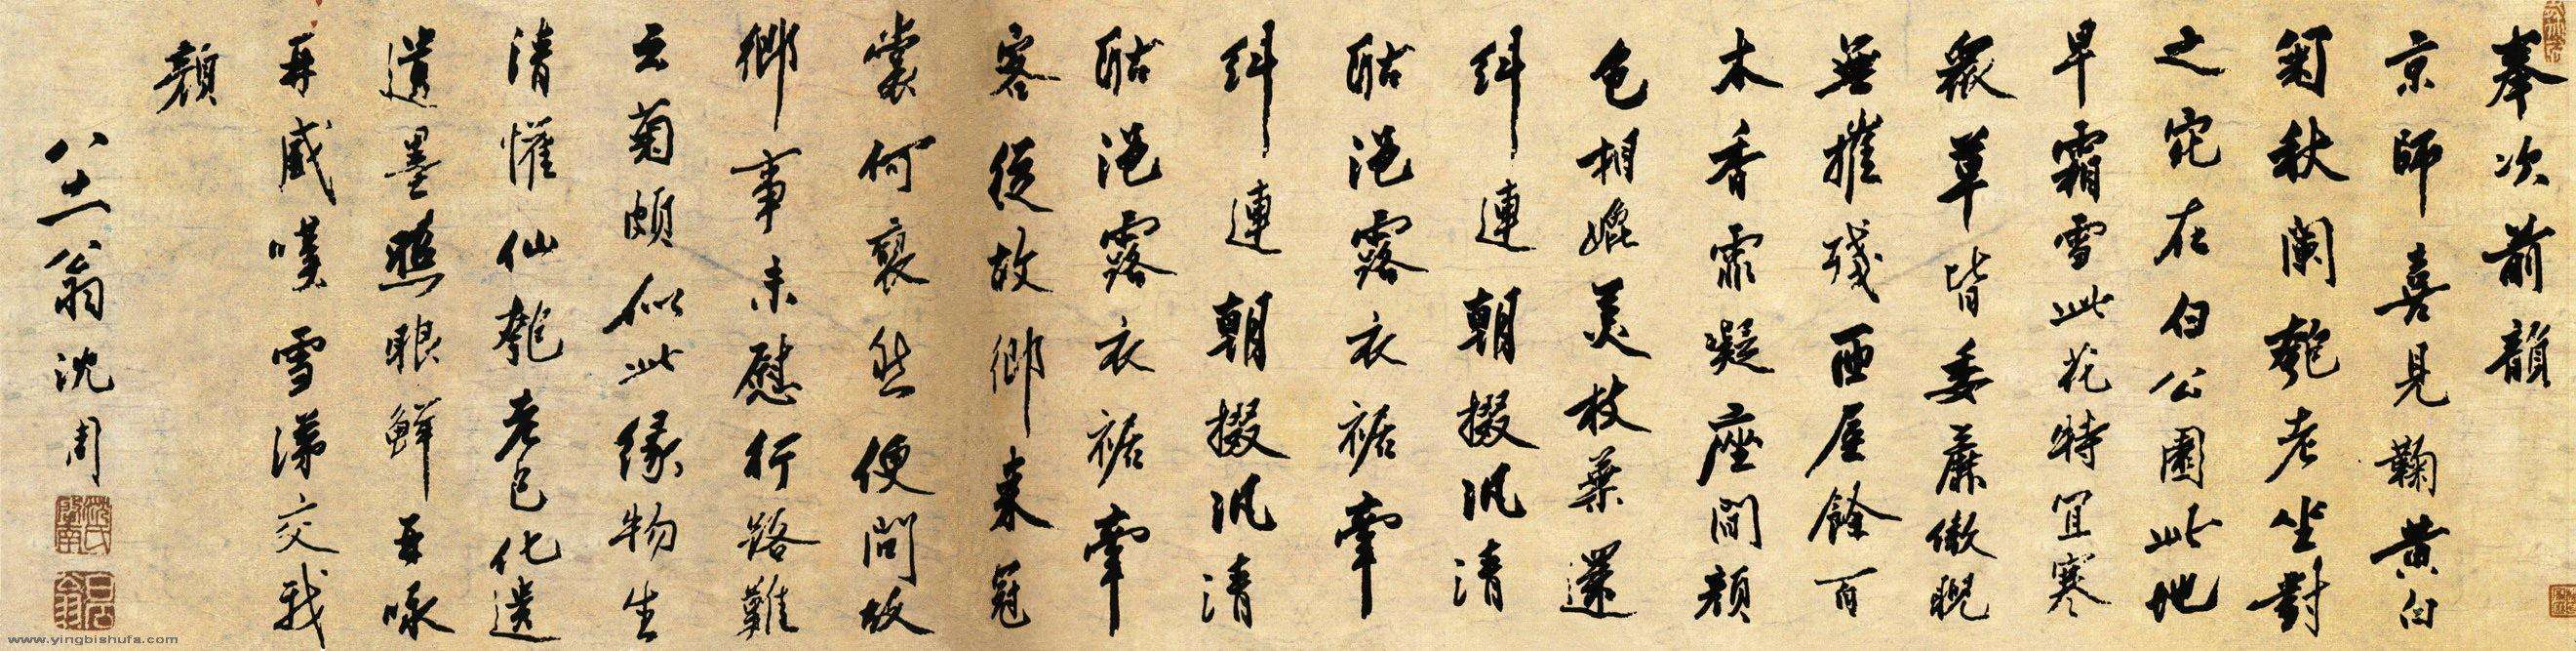 奉次前韻
京師喜見鞠黄白
菊秋闌匏老坐對
之究在白公園此地
早霜雪此花特宜寒
眾草皆委蘼傲睨
無摧殘西屋餘百
木香霏凝座間顏
色相媲美枝葉還
糾連朝掇汎清
酤浥露衣裾牽
糾連朝掇汎清
酤浥露衣裾牽
客從故鄉來冠
裳何裒然便問故
鄉事未慰行路難
云菊頗似此緣物生
清懽仙匏老已化遺
遺墨照眼鮮吾咏
再感嘆雪涕交我
顏
八十二翁沈周
www.yingbishufa.com